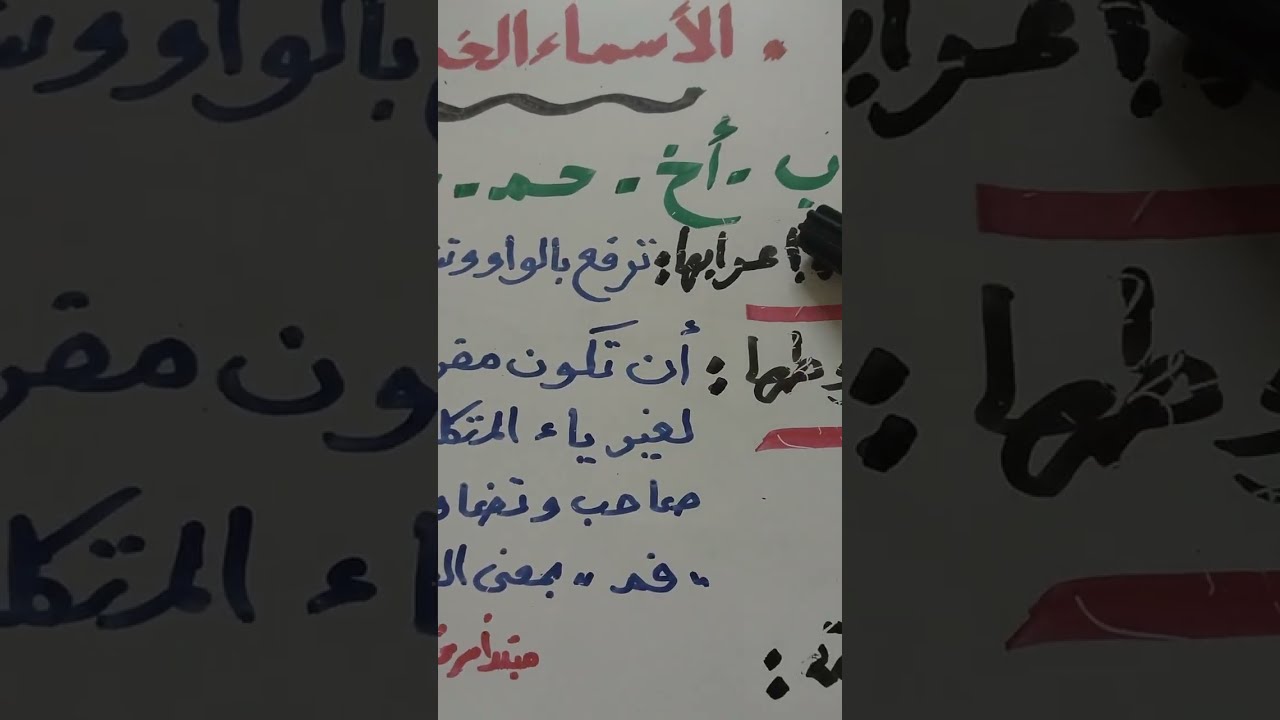 الأسماء الخ
ب - أخ - حمـ -
إعرابها: ترفع بالواو وتن
وطها: أن تكون مقر
لغير ياء المتكل
صاحب وتضا
"فمـ" بمعنى ال
مبتدأ مر